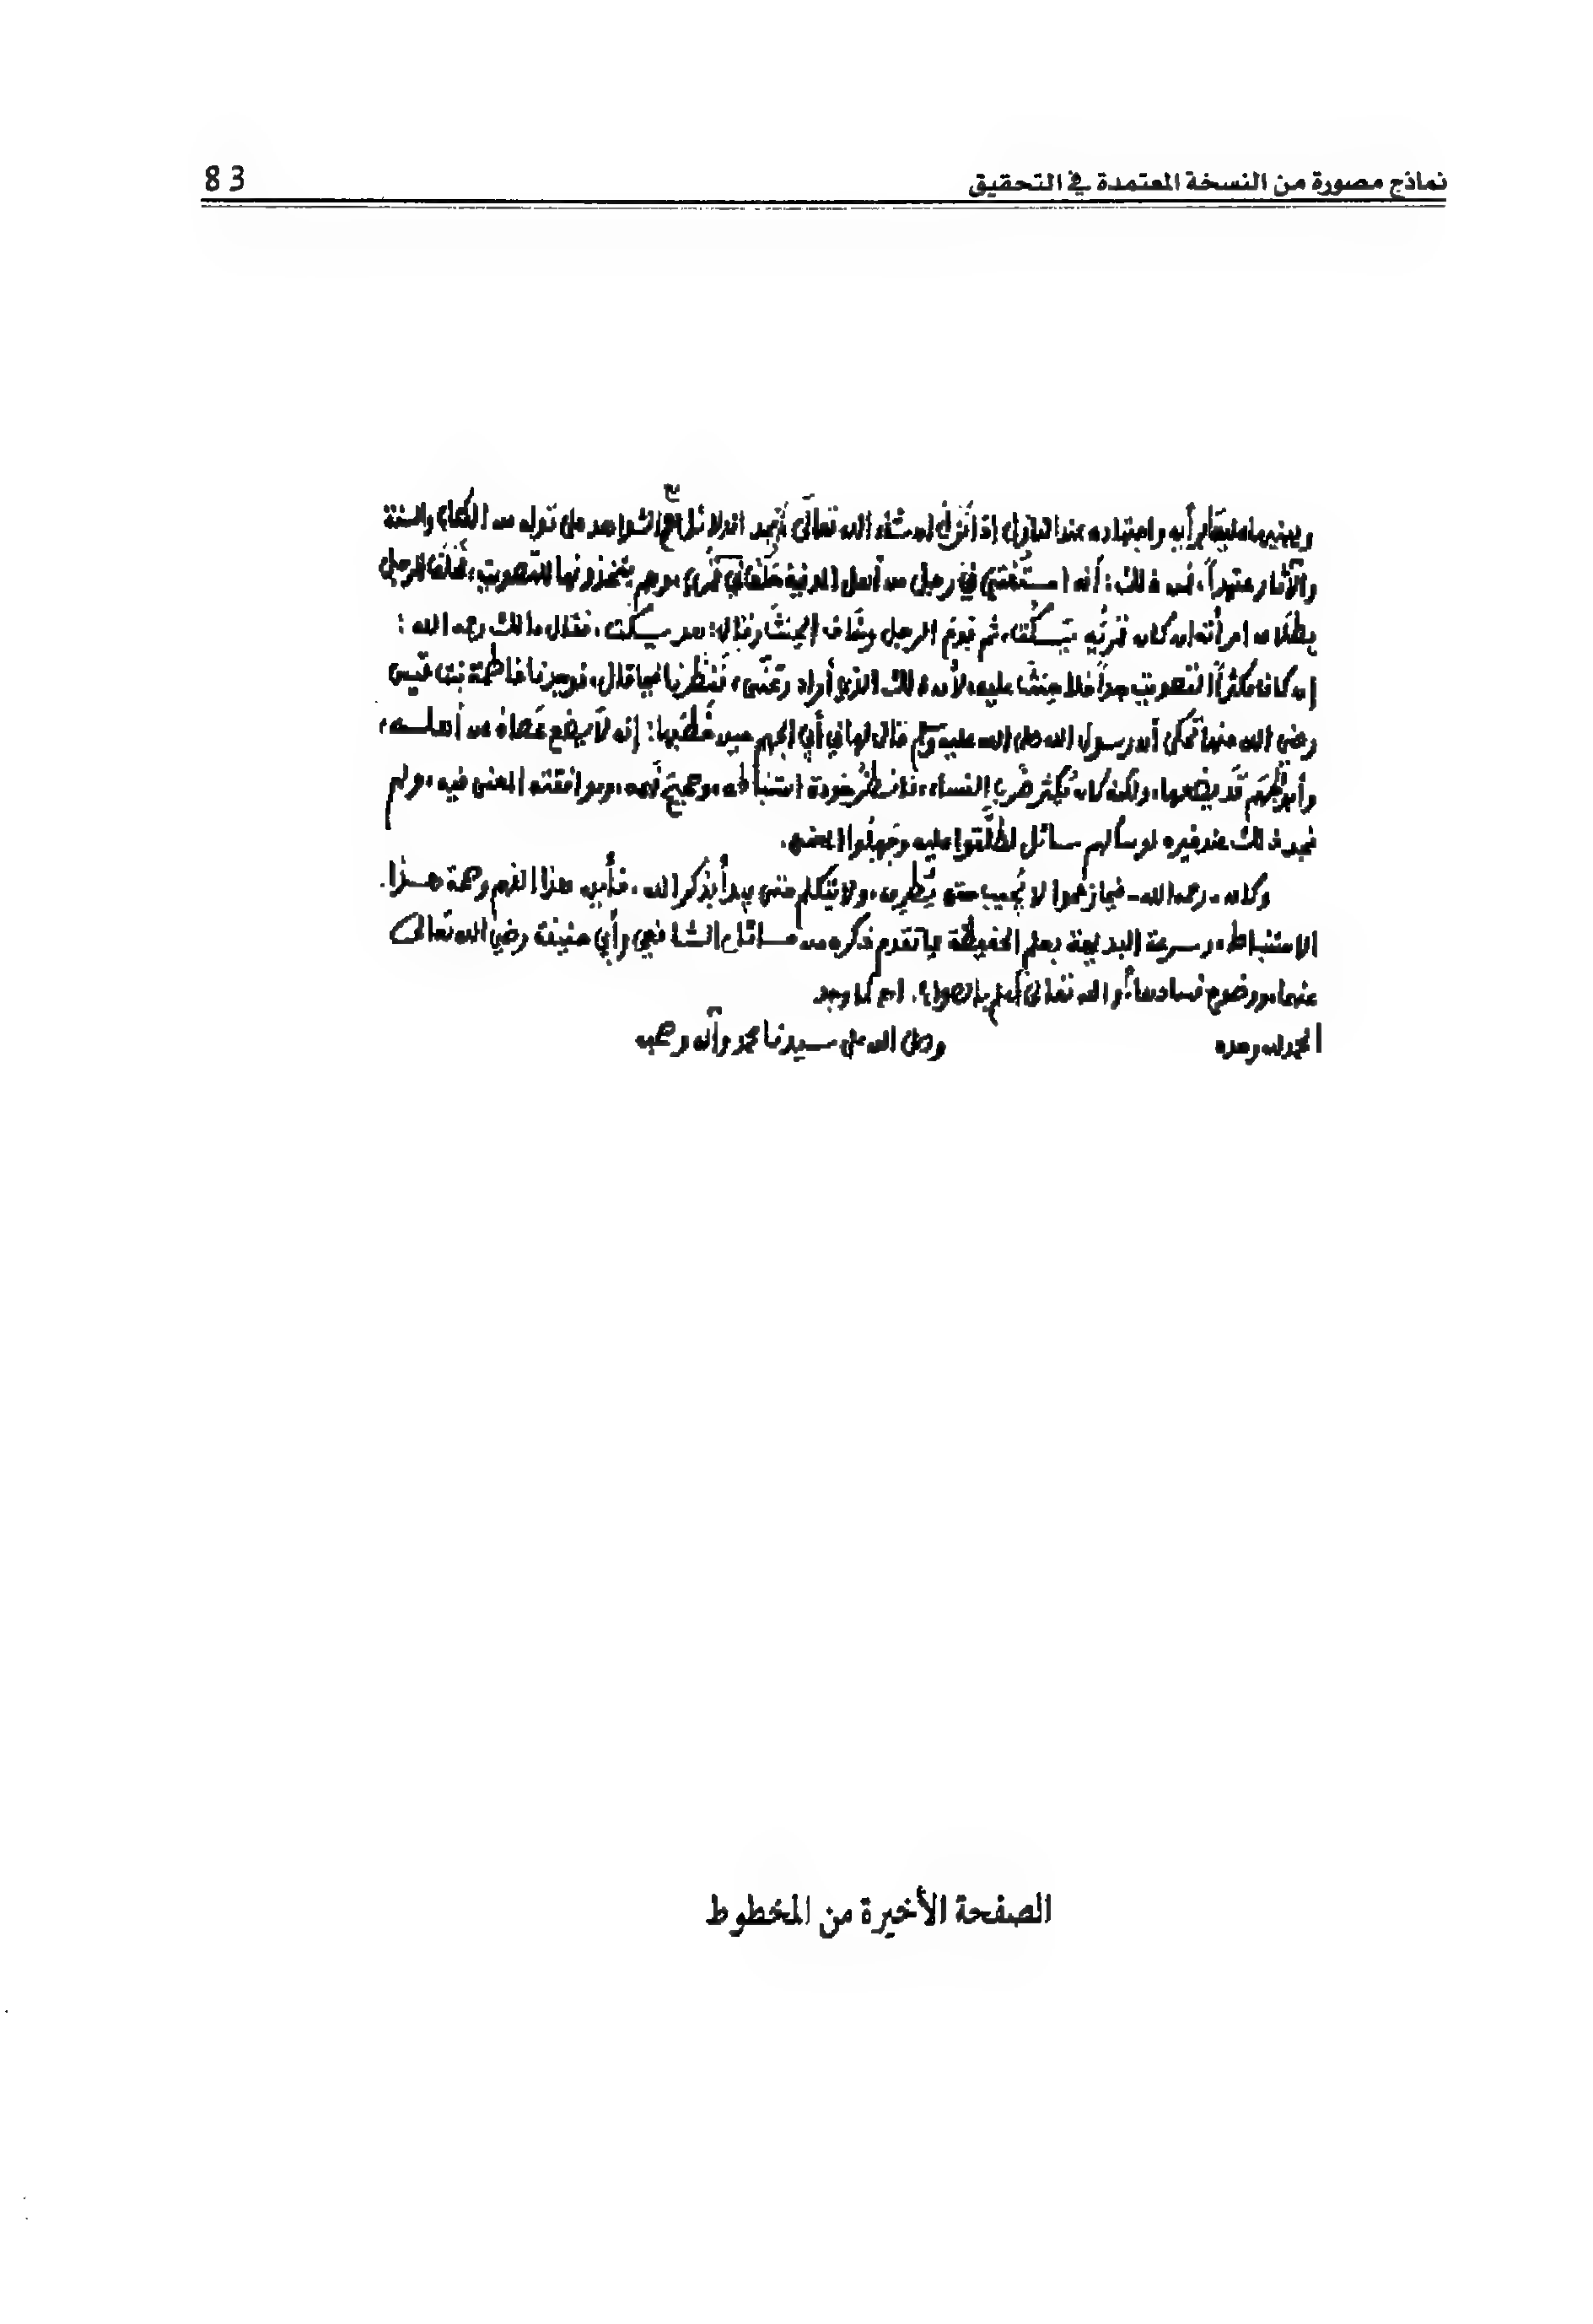 نماذج مصورة من النسخة المعتمدة في التحقيق 83
رأيه واجتهاده عند النوازل إذا أنزل إن شاء الله تعالى تجد الدلائل والشواهد على قوله من الكتاب والسنة
والآثار فمن ذلك: أنه استفتي في رجل من أهل المدينة وهم يتخذونها للتصويت، فحلف الرجل
بطلاق امرأته إن كان يسكت، ثم قدم الرجل وخاف الحنث وقال: يسكت، فقال مالك رحمه الله:
إن كان مكثراً التصويت جداً فلا حنث عليه، لأن ذلك الذي أراد وعنى، فنظرنا فيما قال، فوجدنا فاطمة بنت قيس
رضي الله عنها تحكي أن رسول الله صلى الله عليه وسلم قال لها في أبي الجهم حين خطبها: إنه لا يضع عصاه من أهله،
وأبو الجهم قد يضعها، ولكنه كان يكثر ضرب النساء، فانظر جودة استنباطه، وصحيح فهمه، وموافقته المعنى فيه، ولم
نجد ذلك عند غيره لو سألهم سائل لطلقوا عليه وجهلوا المعنى.
وكان - رحمه الله - فيما زعموا لا يجيب حتى يطرق، ولا يتكلم حتى يبدأ بذكر الله، فأين هذا الفهم وصحة هذا
الاستنباط، وسرعة البديهة بعلم الحقيقة بما تقدم ذكره من مسائل الشافعي وأبي حنيفة رضي الله تعالى
عنهما، ووضوح فسادها، والله تعالى أعلم بالصواب. اهـ كما وجد
الحمد لله وحده وصلى الله على سيدنا محمد وآله وصحبه
الصفحة الأخيرة من المخطوط